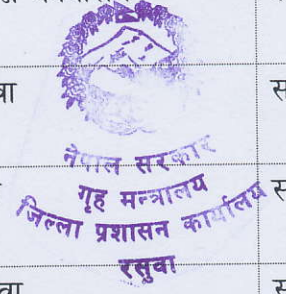 वा
नेपाल सरकार
गृह मन्त्रालय
जिल्ला प्रशासन कार्यालय
रसुवा